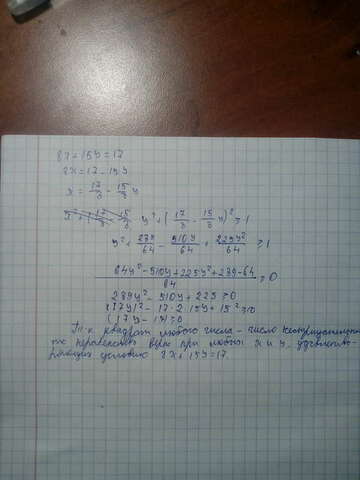 8x+15y=17
8x=17-15y
x = 17/8 - 15/8 y
y² + (17/8 - 15/8 y)² ≥ 1
y² + 289/64 - 510y/64 + 225y²/64 ≥ 1
(64y² - 510y + 225y² + 289 - 64)/64 ≥ 0
289y² - 510y + 225 ≥ 0
(17y)² - 17·2·15y + 15² ≥ 0
Т.к квадрат любого числа - число неотрицательное
то неравенство верно при любых x и y, удовлетво-
ряющих условию 8x+15y=17.